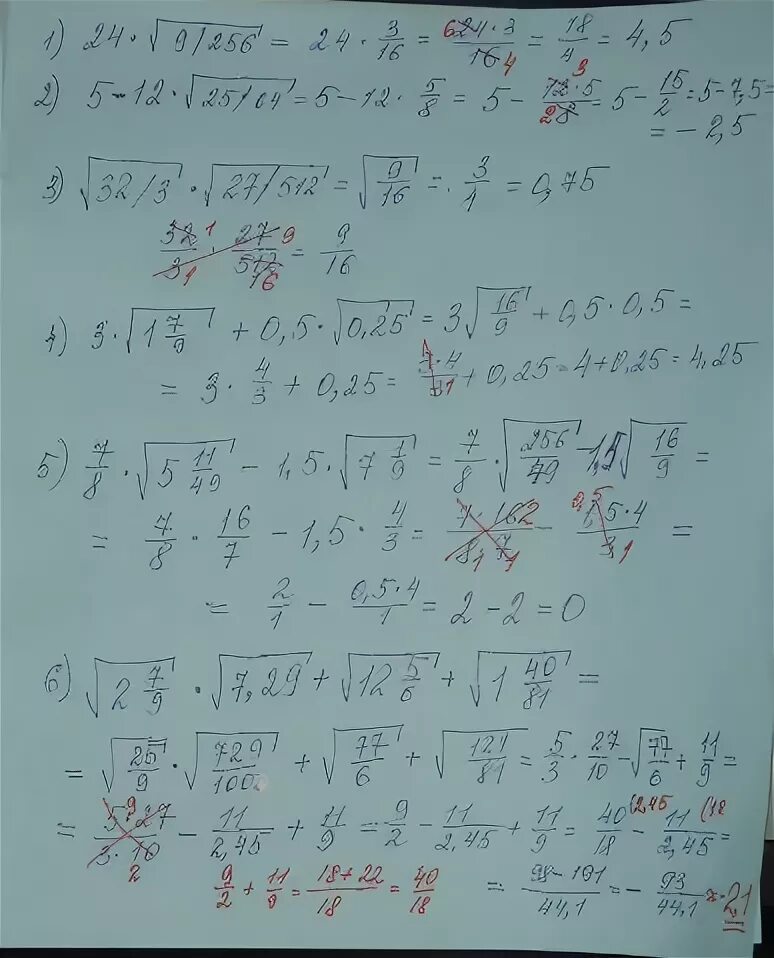 1) 24 · √(9/256) = 24 · 3/16 = 6 24·3/16 4 = 18/4 = 4,5
2) 5 - 12 · √(25/64) = 5 - 12 · 5/8 = 5 - 12·5/8 2 = 5 - 15/2 = 5 - 7,5 =
= - 2,5
3
3) √(32/3) · √(27/512) = √(9/16) = · 3/4 = 0,75
32/3 1 1 · 27/512 9 16 = 9/16
4) 3 · √(1 7/9) + 0,5 · √(0,25) = 3√(16/9) + 0,5 · 0,5 =
= 3 · 4/3 + 0,25 = 1 3·4/3 1 + 0,25 = 4 + 0,25 = 4,25
5) 7/8 · √(5 11/49) - 1,5 · √(7 1/9) = 7/8 · √(256/49) - 1,5 √(16/9) =
= 7/8 · 16/7 - 1,5 · 4/3 = 7·16 2/8 1 7 1 - 0,5 1,5·4/3 1 =
= 2/1 - 0,5·4/1 = 2 - 2 = 0
6) √(2 7/9) · √(7,29) + √(12 5/6) + √(1 40/81) =
= √(25/9) · √(729/100) + √(77/6) + √(121/81) = 5/3 · 27/10 - √(77/6) + 11/9 =
= 5·27 9/3·10 2 - 11/2,45 + 11/9 = 9/2 - 11/2,45 + 11/9 = 40/18 (2,45 - 11/2,45 (18 =
9/2 + 11/9 = 18+22/18 = 40/18
= 98-191/44,1 = - 93/44,1 ≈ - 2,1